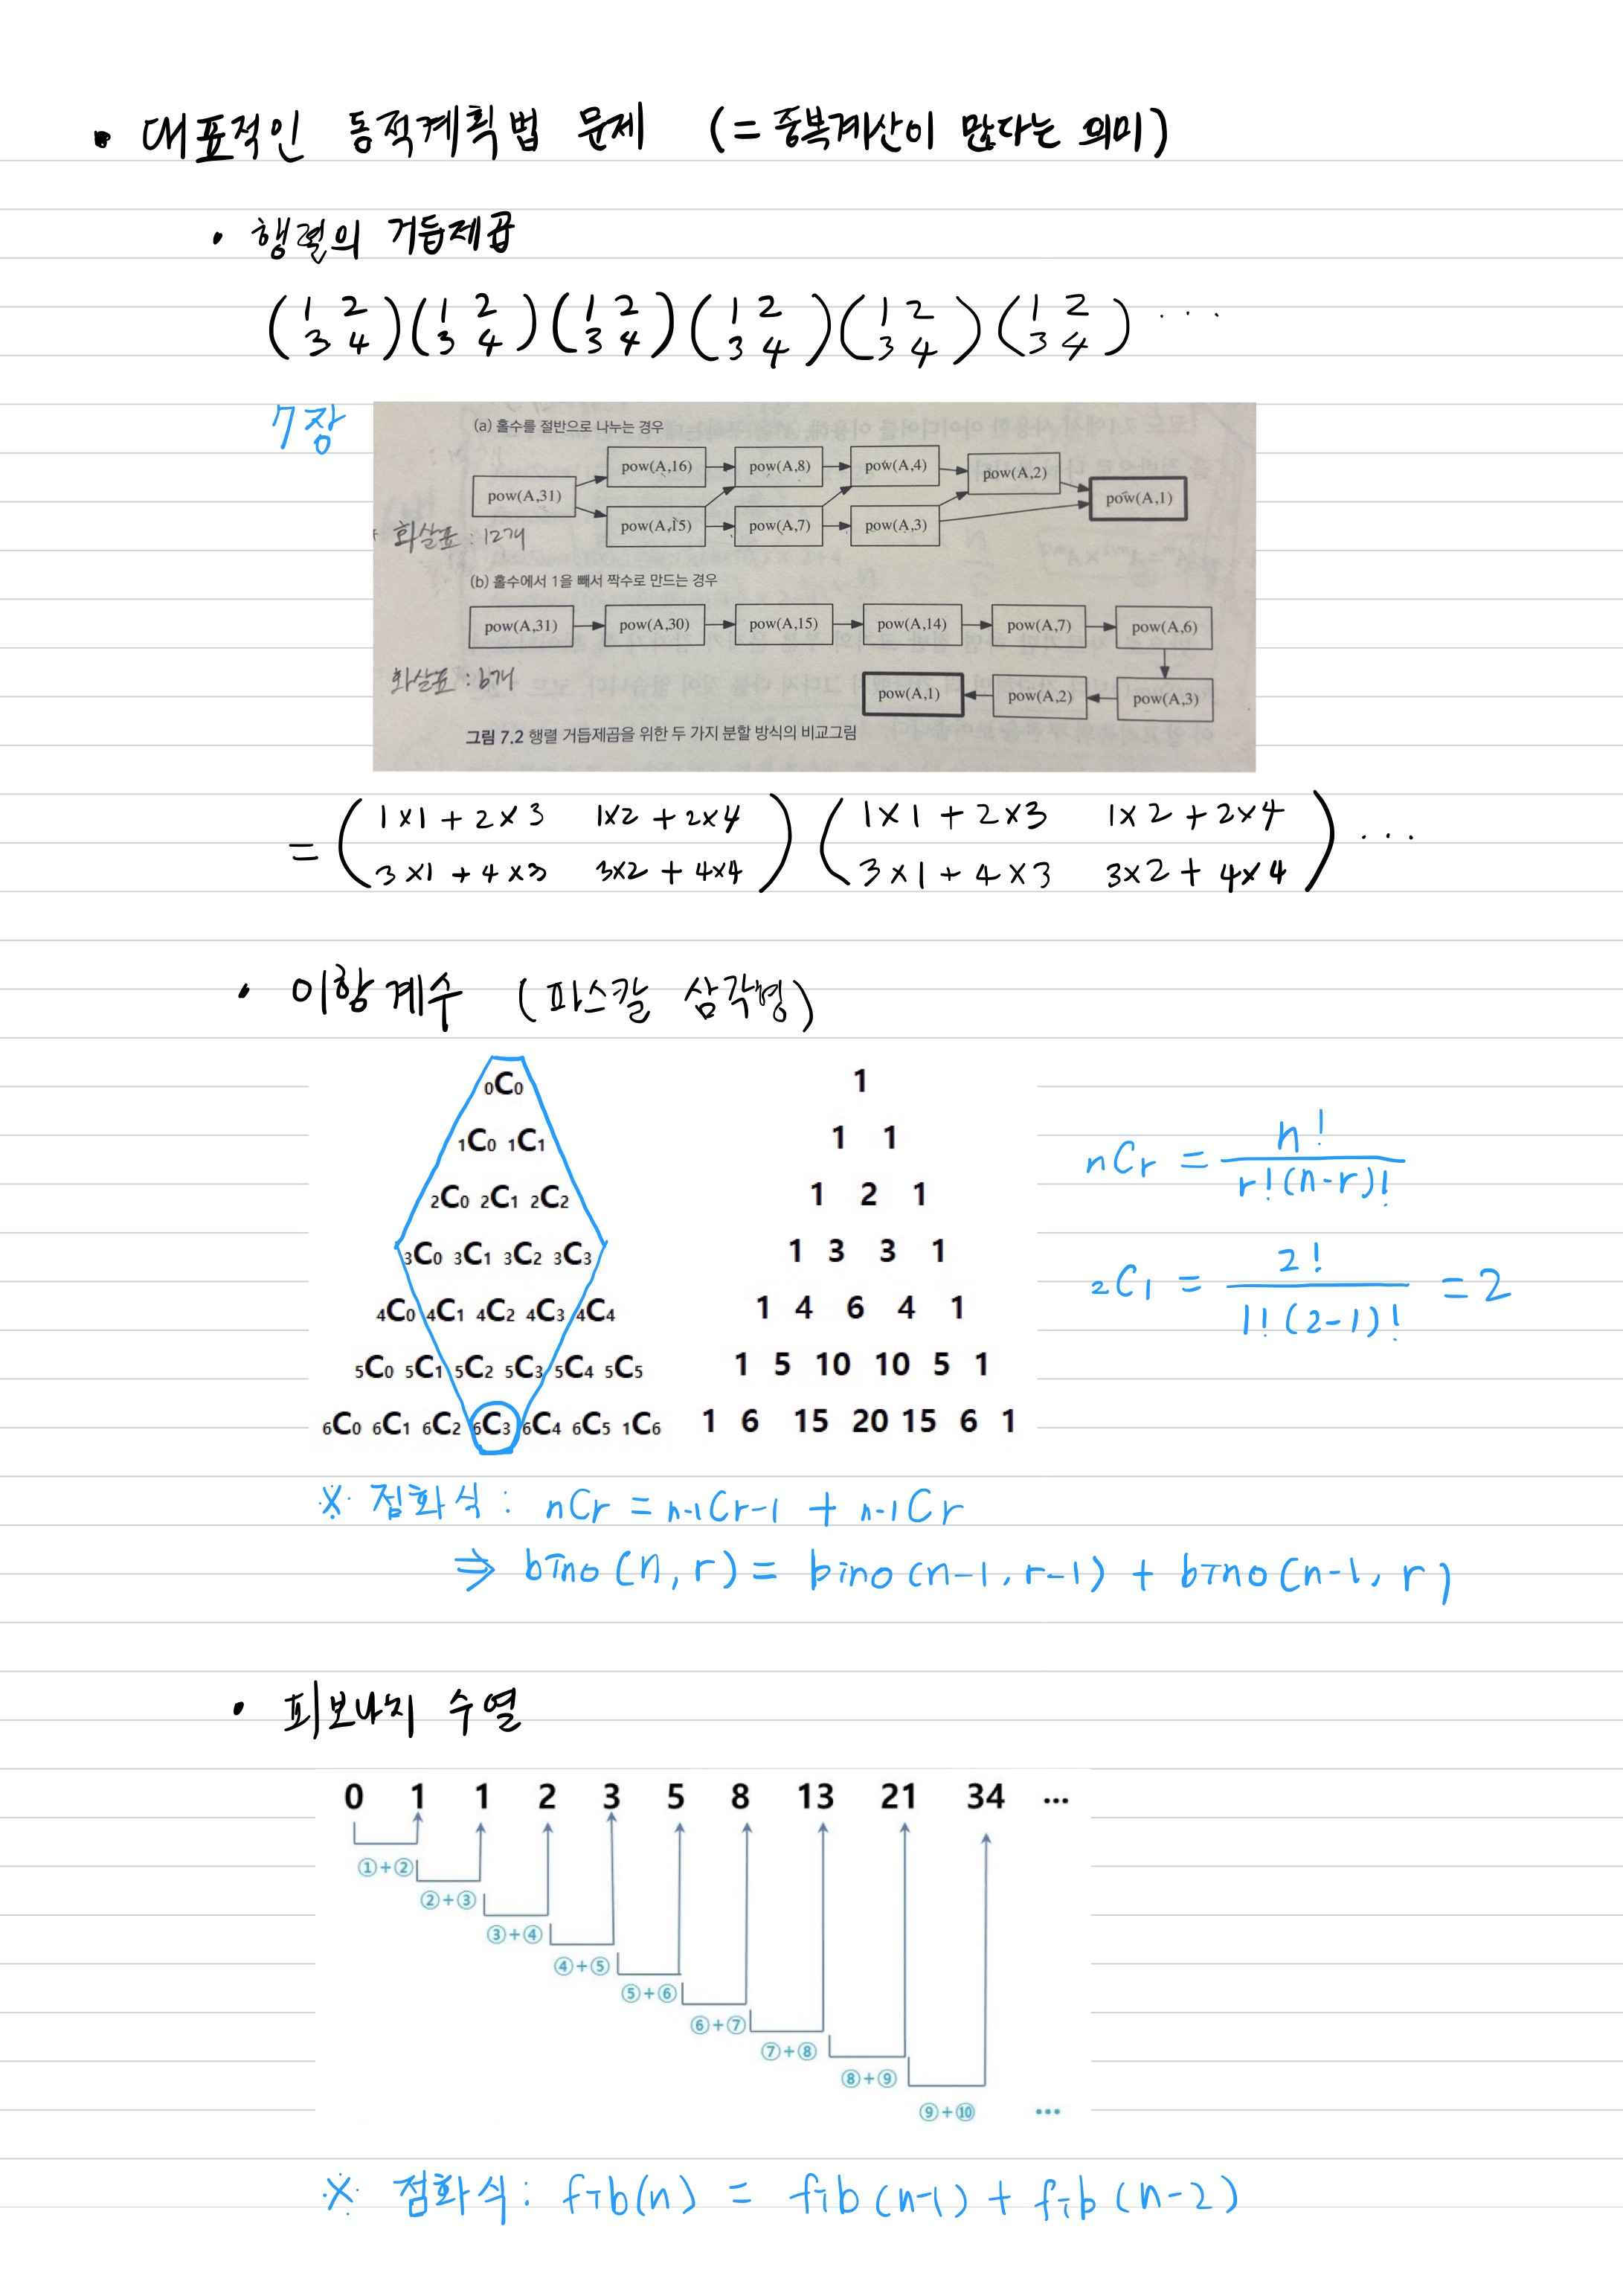 • 대표적인 동적계획법 문제 (= 중복계산이 많다는 의미)
• 행렬의 거듭제곱
(1 2 3 4)(1 2 3 4)(1 2 3 4)(1 2 3 4)(1 2 3 4)(1 2 3 4) ...
7장
(a) 홀수를 절반으로 나누는 경우
pow(A,16) pow(A,8) pow(A,4) pow(A,2)
pow(A,31) pow(A,1)
pow(A,15) pow(A,7) pow(A,3)
화살표 : 12개
(b) 홀수에서 1을 빼서 짝수로 만드는 경우
pow(A,31) pow(A,30) pow(A,15) pow(A,14) pow(A,7) pow(A,6)
화살표 : 6개
pow(A,1) pow(A,2) pow(A,3)
그림 7.2 행렬 거듭제곱을 위한 두 가지 분할 방식의 비교그림
= (1×1+2×3 1×2+2×4 (1×1+2×3 1×2+2×4 ...
3×1+4×3 3×2+4×4) 3×1+4×3 3×2+4×4)
• 이항계수 (파스칼 삼각형)
₀C₀
₁C₀ ₁C₁
₂C₀ ₂C₁ ₂C₂
₃C₀ ₃C₁ ₃C₂ ₃C₃
₄C₀ ₄C₁ ₄C₂ ₄C₃ ₄C₄
₅C₀ ₅C₁ ₅C₂ ₅C₃ ₅C₄ ₅C₅
₆C₀ ₆C₁ ₆C₂ ₆C₃ ₆C₄ ₆C₅ ₁C₆
1
1 1
1 2 1
1 3 3 1
1 4 6 4 1
1 5 10 10 5 1
1 6 15 20 15 6 1
nCr = n! / r!(n-r)!
₂C₁ = 2! / 1!(2-1)! = 2
※ 점화식 : nCr = n-1Cr-1 + n-1Cr
⇒ bino(n, r) = bino(n-1, r-1) + bino(n-1, r)
• 피보나치 수열
0 1 1 2 3 5 8 13 21 34 ...
①+②
②+③
③+④
④+⑤
⑤+⑥
⑥+⑦
⑦+⑧
⑧+⑨
⑨+⑩ ...
※ 점화식 : fib(n) = fib(n-1) + fib(n-2)